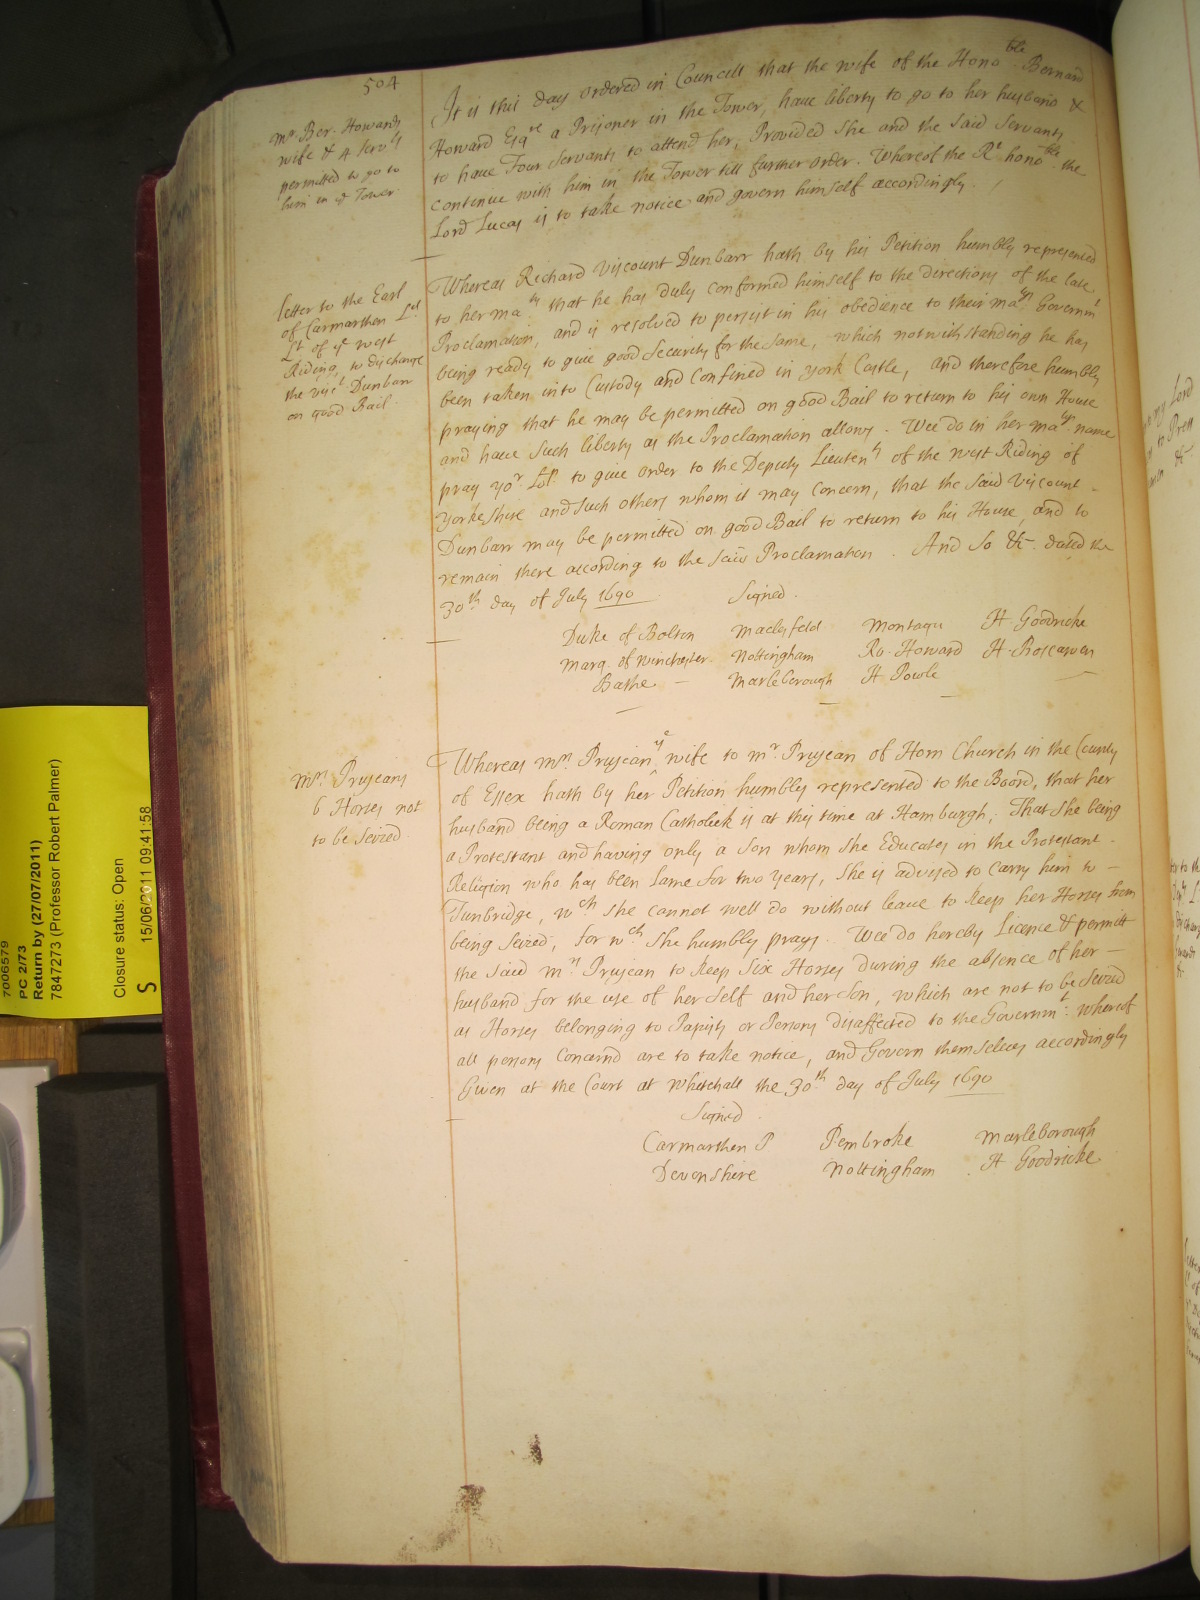 504
Mr. Ber. Howards
wife & 4 Servts
permitted to go to
him in ye Tower
It is this day ordered in Councill that the wife of the Honoble Bernard
Howard Esqre a Prisoner in the Tower, have liberty to go to her husband &
to have Four Servants to attend her, Provided She and the said Servants
continue with him in the Tower till further order. Whereof the Rt honoble the
Lord Lucas is to take notice and govern himself accordingly.
letter to the Earl
of Carmarthen Ld
Lt of ye West
Riding, to discharge
the Visct Dunbarr
on good Bail
Whereas Richard Viscount Dunbarr hath by his Petition humbly represented
to her Maty that he has duly conformed himself to the directions of the late
Proclamation, and is resolved to persist in his obedience to their Matys Governmt
being ready to give good Security for the Same, which notwithstanding he has
been taken into Custody and Confined in York Castle, and therefore humbly
praying that he may be permitted on good Bail to return to his own House
and have Such liberty as the Proclamation allows. Wee do in her Matys name
pray yor Lop to give order to the Deputy Lieutents of the West Riding of
Yorkeshire and such others whom it may Concern, that the said Viscount
Dunbarr may be permitted on good Bail to return to his House, and to
remain there according to the said Proclamation. And So &c. dated the
30th day of July 1690
Signed.
Duke of Bolton Maclesfeld Montagu H Goodricke
Marq. of Winchester Nottingham Ro. Howard H. Boscawen
Bathe Marleborough H Powle
Mrs Prujeans
6 Horses not
to be Seized
Whereas Mrs. Prujean, ye wife to Mr. Prujean of Horn Church in the County
of Essex hath by her Petition humbly represented to the Board, that her
husband being a Roman Catholick is at this time at Hamburgh; That She being
a Protestant and having only a Son whom she Educates in the Protestant
Religion who has been lame for two years, She is advised to carry him to
Tunbridge, wch she cannot well do without leave to keep her Horses from
being Seized, for wch She humbly prays. Wee do hereby Licence & permitt
the said Mrs Prujean to keep Six Horses during the absence of her
husband for the use of her Self and her Son, which are not to be Seized
as Horses belonging to Papists or Persons disaffected to the Governmt. whereof
all persons Concernd are to take notice, and Govern themselves accordingly
Given at the Court at Whitehall the 30th day of July 1690
Signed
Carmarthen P Pembroke Marleborough
Devonshire Nottingham H Goodricke
7006579
PC 2/73
Return by (27/07/2011)
7847273 (Professor Robert Palmer)
Closure status: Open
S 15/06/2011 09:41:58